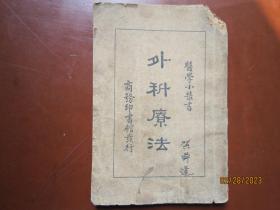 醫學小叢書
外科療法
商務印書館發行
08/28/2023